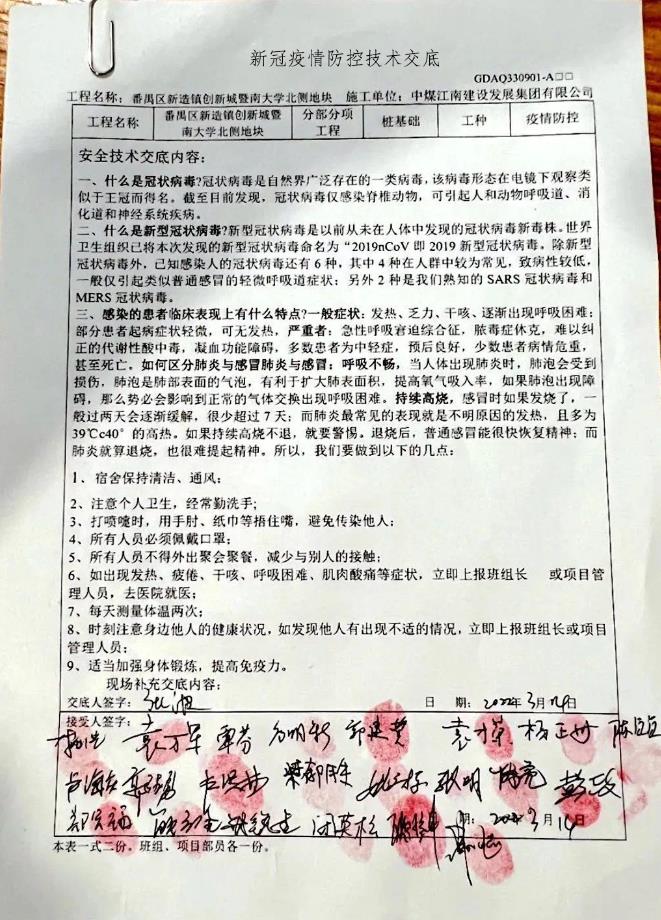 新冠疫情防控技术交底
GDAQ330901-A□□
工程名称：番禺区新造镇创新城暨南大学北侧地块 施工单位：中煤江南建设发展集团有限公司
工程名称 番禺区新造镇创新城暨南大学北侧地块 分部分项工程 桩基础 工种 疫情防控
安全技术交底内容：
一、什么是冠状病毒?冠状病毒是自然界广泛存在的一类病毒,该病毒形态在电镜下观察类
似于王冠而得名。截至目前发现，冠状病毒仅感染脊椎动物，可引起人和动物呼吸道、消
化道和神经系统疾病。
二、什么是新型冠状病毒?新型冠状病毒是以前从未在人体中发现的冠状病毒新毒株。世界
卫生组织已将本次发现的新型冠状病毒命名为“2019nCoV 即 2019 新型冠状病毒。除新型
冠状病毒外，已知感染人的冠状病毒还有 6 种，其中 4 种在人群中较为常见，致病性较低，
一般仅引起类似普通感冒的轻微呼吸道症状；另外 2 种是我们熟知的 SARS 冠状病毒和
MERS 冠状病毒。
三、感染的患者临床表现上有什么特点?一般症状：发热、乏力、干咳、逐渐出现呼吸困难；
部分患者起病症状轻微，可无发热，严重者：急性呼吸窘迫综合征，脓毒症休克，难以纠
正的代谢性酸中毒，凝血功能障碍，多数患者为中轻症，预后良好，少数患者病情危重，
甚至死亡。如何区分肺炎与感冒肺炎与感冒：呼吸不畅，当人体出现肺炎时，肺泡会受到
损伤，肺泡是肺部表面的气泡，有利于扩大肺表面积，提高氧气吸入率，如果肺泡出现障
碍，那么势必会影响到正常的气体交换出现呼吸困难。持续高烧，感冒时如果发烧了，一
般过两天会逐渐缓解，很少超过 7 天；而肺炎最常见的表现就是不明原因的发热，且多为
39℃c40°的高热。如果持续高烧不退，就要警惕。退烧后，普通感冒能很快恢复精神；而
肺炎就算退烧，也很难提起精神。所以，我们要做到以下的几点：
1、宿舍保持清洁、通风；
2、注意个人卫生，经常勤洗手;
3、打喷嚏时，用手肘、纸巾等捂住嘴，避免传染他人；
4、所有人员必须佩戴口罩；
5、所有人员不得外出聚会聚餐，减少与别人的接触；
6、如出现发热、疲倦、干咳、呼吸困难、肌肉酸痛等症状，立即上报班组长 或项目管
理人员，去医院就医；
7、每天测量体温两次；
8、时刻注意身边他人的健康状况，如发现他人有出现不适的情况，立即上报班组长或项目
管理人员；
9、适当加强身体锻炼，提高免疫力。
现场补充交底内容：
交底人签字： 日 期：2022年3月14日
接受人签字：
期： 2022年3月14日
本表一式二份。班组、项目部员各一份。